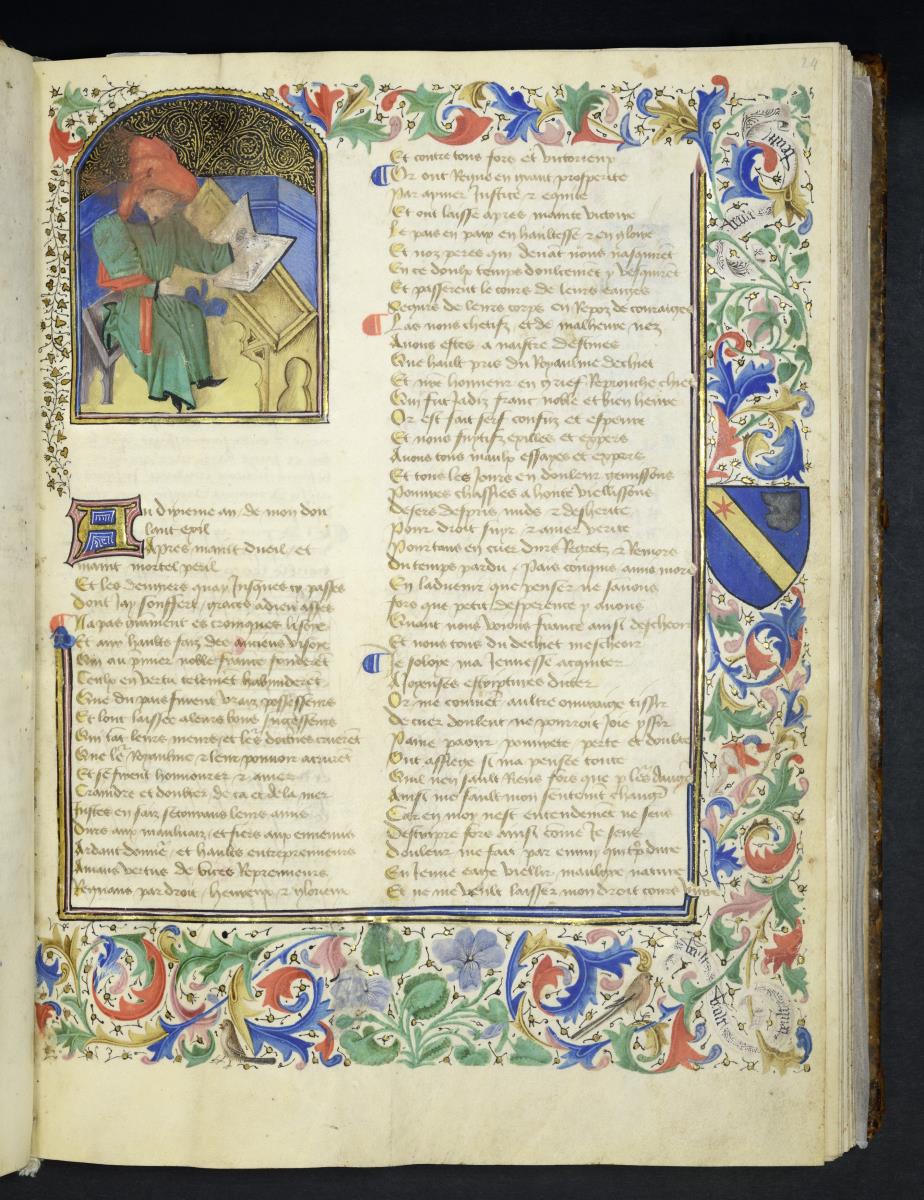 24
Au dixieme an de mon dou
lant exil
Apres maint dueil et
maint mortel peril
Et les dengiers quay Jusques cy passes
Dont Jay souffert graces a dieu asses
Na pas grament es croniques lisoye
Et aux haults faiz des anciens visoye
Qui au pmier noble france fonderent
Ceulx en vertu tellemet habonderet
Que du pais furent vraiz possesseurs
Et lont laissee a leurs bons successeurs
Que le Royaulme & leur pouoir
Et se firent honnourer & amer
Craindre et doubter de ca et de la mer
Justes en faiz secourans leurs amis
Durs aux mauluaiz et fiers aux ennemis
Ardant donneur et haults entrepreneurs
Amans vertus de vices Repreneurs
Regnans par droit heureux & glorieux
Et contre tous fors et victorieux
Or ont Regne en grant prosperite
Par amer Justice & equite
Et ont laisse apres mainte victoire
Le pais en paix en haultesse & en gloire
Et noz peres qui deuat nous nasquiret
En ce doulx temps doulcement y vesquiret
Et passerent le cours de leurs eages
Seurs de leurs corps en Repoz de couraiges
Las nous chetifz et de malheure nez
Auons estes a naistre destines
Que hault pris du Royaulme dechiet
Et nre honneur en grief Reprouche chiet
Qui fut Jadiz franc noble et bien heure
Or est fait serf confuz et espeure
Et nous fuytifz exilles et expers
Auons tous maulx essayes et expers
Et tous les Jours en douleur gemissons
Pouures chassies a honte viellissons
desers despris nuds & desherite
Pour droit suyr & amer verite
Pourtans en cuer durs Regretz & Remors
Du temps perdu pais conquis amis mors
En laduenir que penser ne sauons
fors que petit desperence y auons
Quant nous voions france ainsi descheoir
Et nous tous du dechiet mescheoir
Je soloye ma Jeunesse acquiter
A Joyeuses escriptures dicter
Or me conuiet aultre ouuraige tissir
De cuer doulent ne pourroit Joie yssir
Paine paour pouurete perte et doubte
Ont assiege si ma pensee toute
Quil nen sault Riens fors que p les
Ainsi me fault mon sentemt changier
Car en moy nest entendemet ne sens
Descripre fors ainsi come Je sens
Douleur me fait par ennuy
En Jeune eage viellir maulgre nature
Et ne me veult laisser mon droit cours